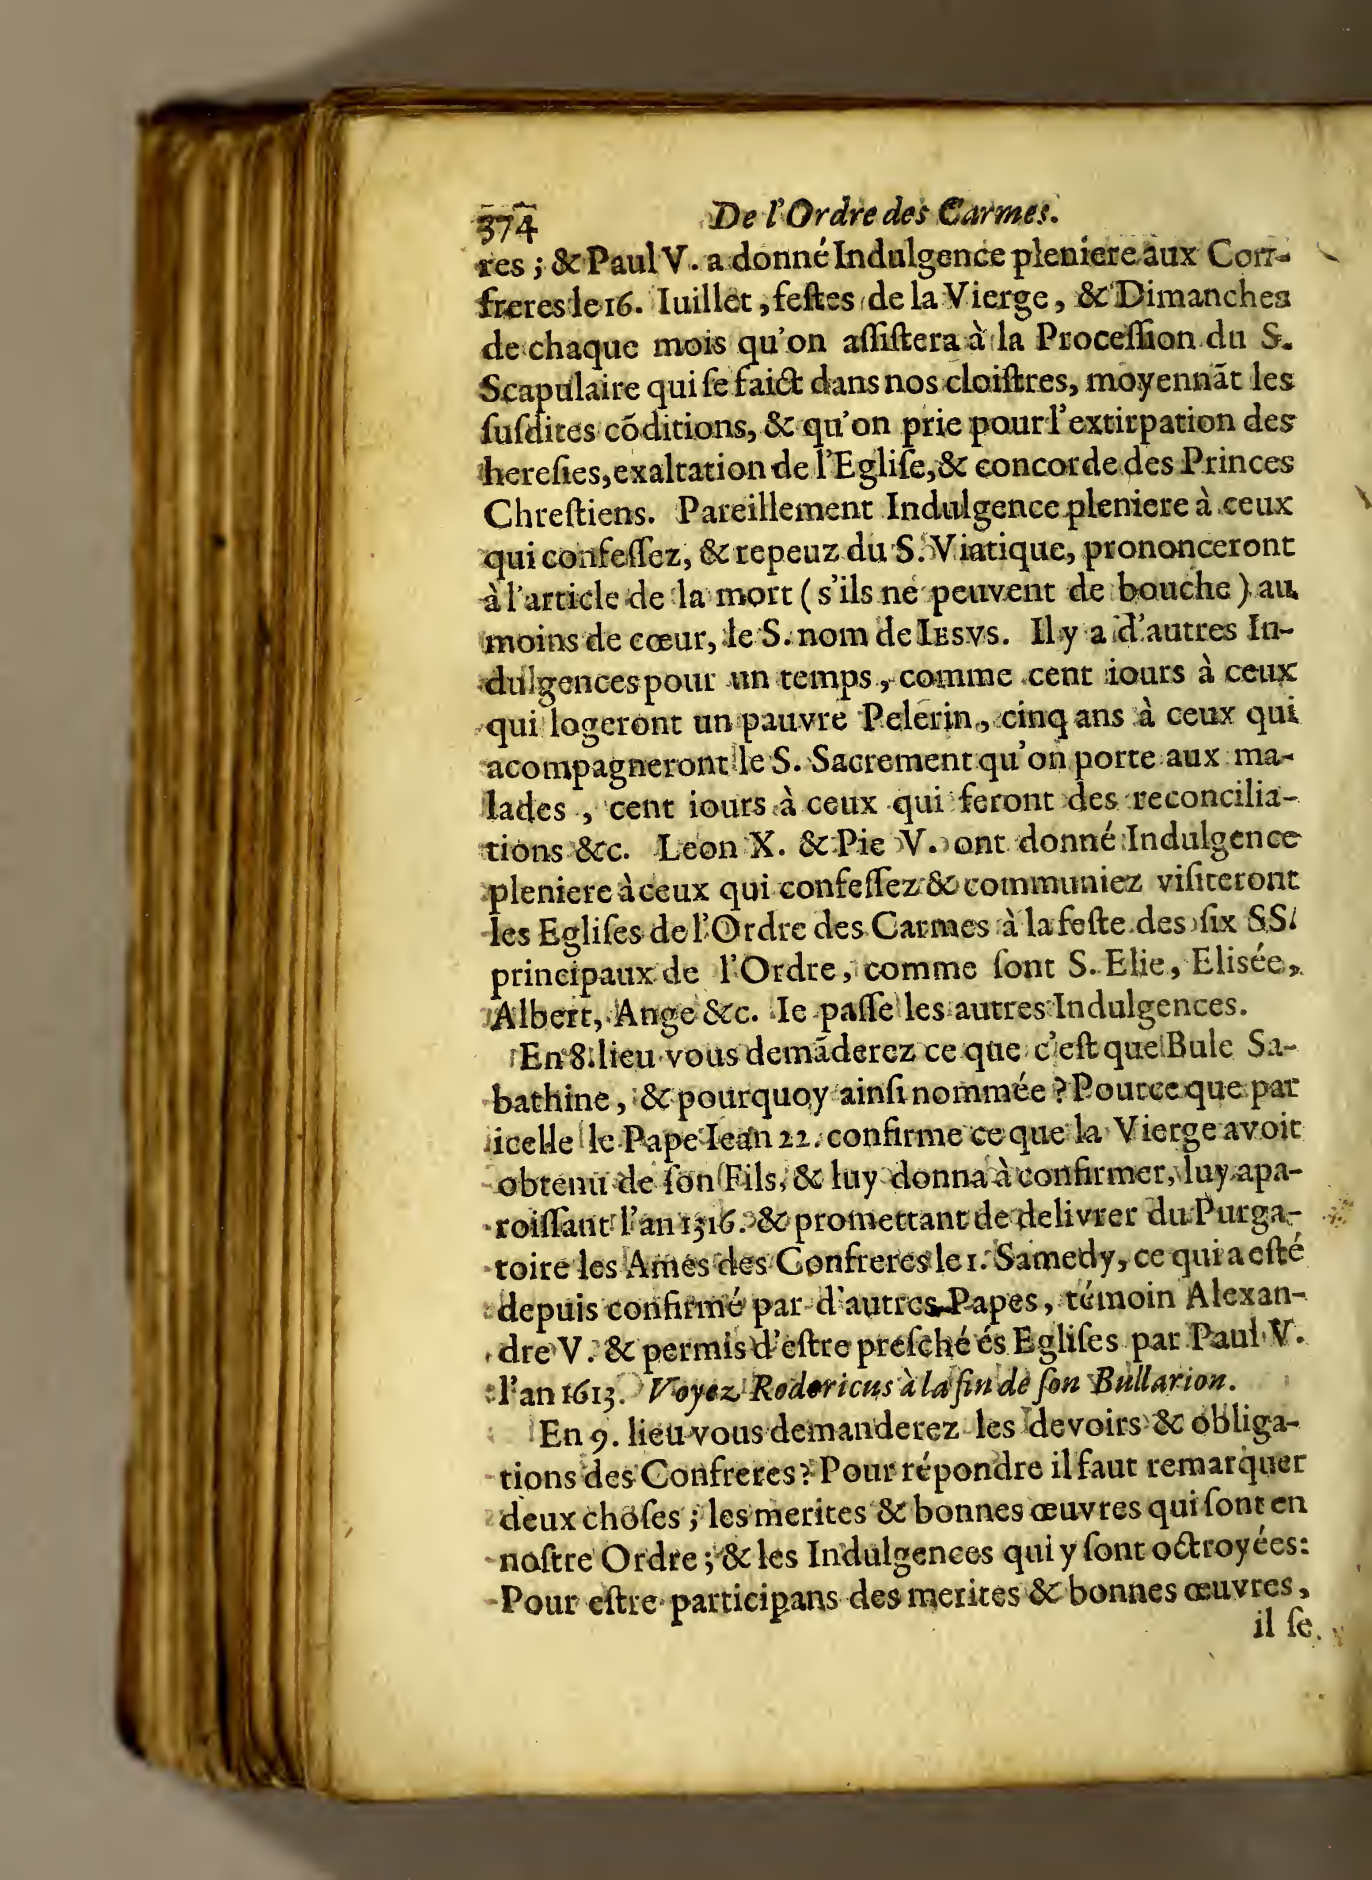 374 De l'Ordre des Carmes.
res ; & Paul V. a donné Indulgence pleniere aux Con-
freres le 16. Iuillet, feſtes de la Vierge, & Dimanches
de chaque mois qu'on aſſiſtera à la Proceſſion du S.
Scapulaire qui ſe faict dans nos cloiſtres, moyennāt les
ſuſdites cōditions, & qu'on prie pour l'extirpation des
hereſies, exaltation de l'Egliſe, & concorde des Princes
Chreſtiens. Pareillement Indulgence pleniere à ceux
qui confeſſez, & repeuz du S. Viatique, prononceront
à l'article de la mort (s'ils ne peuvent de bouche) au
moins de cœur, le S. nom de IESVS. Il y a d'autres In-
dulgences pour un temps, comme cent iours à ceux
qui logeront un pauvre Pelerin, cinq ans à ceux qui
acompagneront le S. Sacrement qu'on porte aux ma-
lades, cent iours à ceux qui feront des reconcilia-
tions &c. Leon X. & Pie V. ont donné Indulgence
pleniere à ceux qui confeſſez & communiez viſiteront
les Egliſes de l'Ordre des Carmes à la feſte des ſix SS.
principaux de l'Ordre, comme ſont S. Elie, Elisée,
Albert, Ange &c. Ie paſſe les autres Indulgences.
En 8. lieu vous demāderez ce que c'eſt que Bule Sa-
bathine, & pourquoy ainſi nommée ? Pource que par
icelle le Pape Iean 22. confirme ce que la Vierge avoit
obtenu de ſon Fils, & luy donna à confirmer, luy apa-
roiſſant l'an 1316. & promettant de delivrer du Purga-
toire les Ames des Confreres le 1. Samedy, ce qui a eſté
depuis confirmé par d'autres Papes, témoin Alexan-
dre V. & permis d'eſtre preſché és Egliſes par Paul V.
l'an 1613. Voyez Rodericus à la fin de ſon Bullarion.
En 9. lieu vous demanderez les devoirs & obliga-
tions des Confreres ? Pour répondre il faut remarquer
deux choſes ; les merites & bonnes œuvres qui ſont en
noſtre Ordre ; & les Indulgences qui y ſont octroyées:
Pour eſtre participans des merites & bonnes œuvres,
il ſe